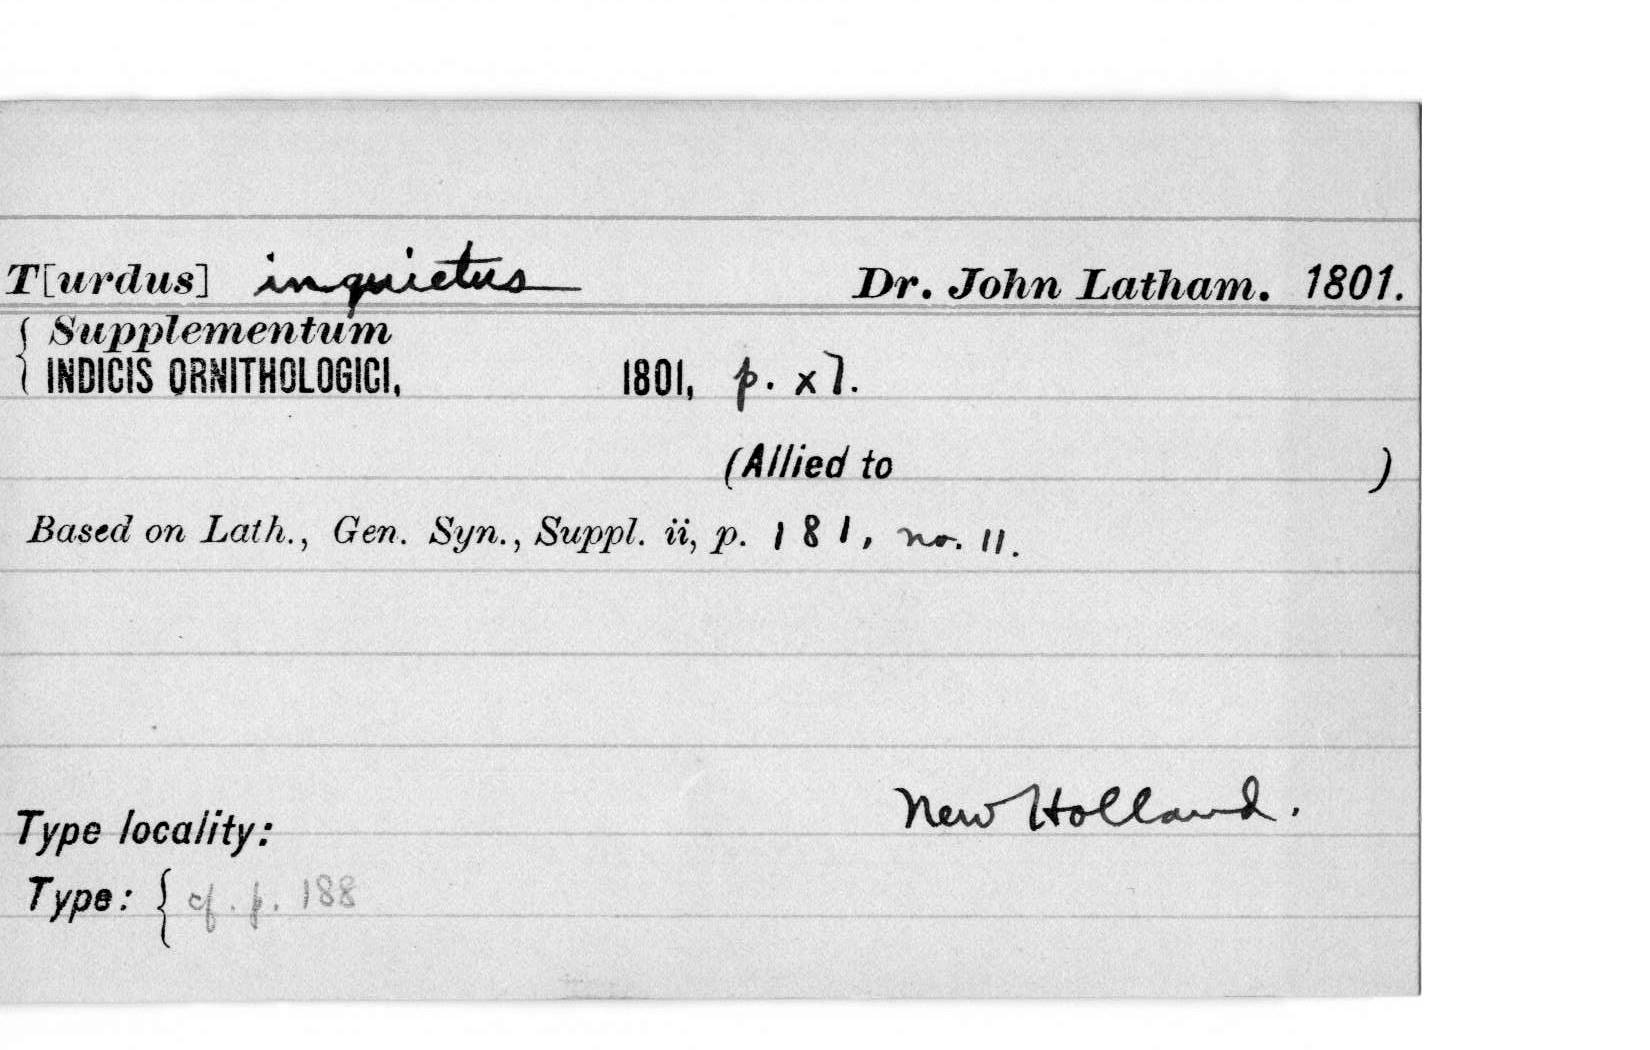 T[urdus] inquietus Dr. John Latham. 1801.
{ Supplementum
INDICIS ORNITHOLOGICI, 1801, p. xl.
(Allied to )
Based on Lath., Gen. Syn., Suppl. ii, p. 181, no. 11.
New Holland.
Type locality:
Type: { cf. p. 188